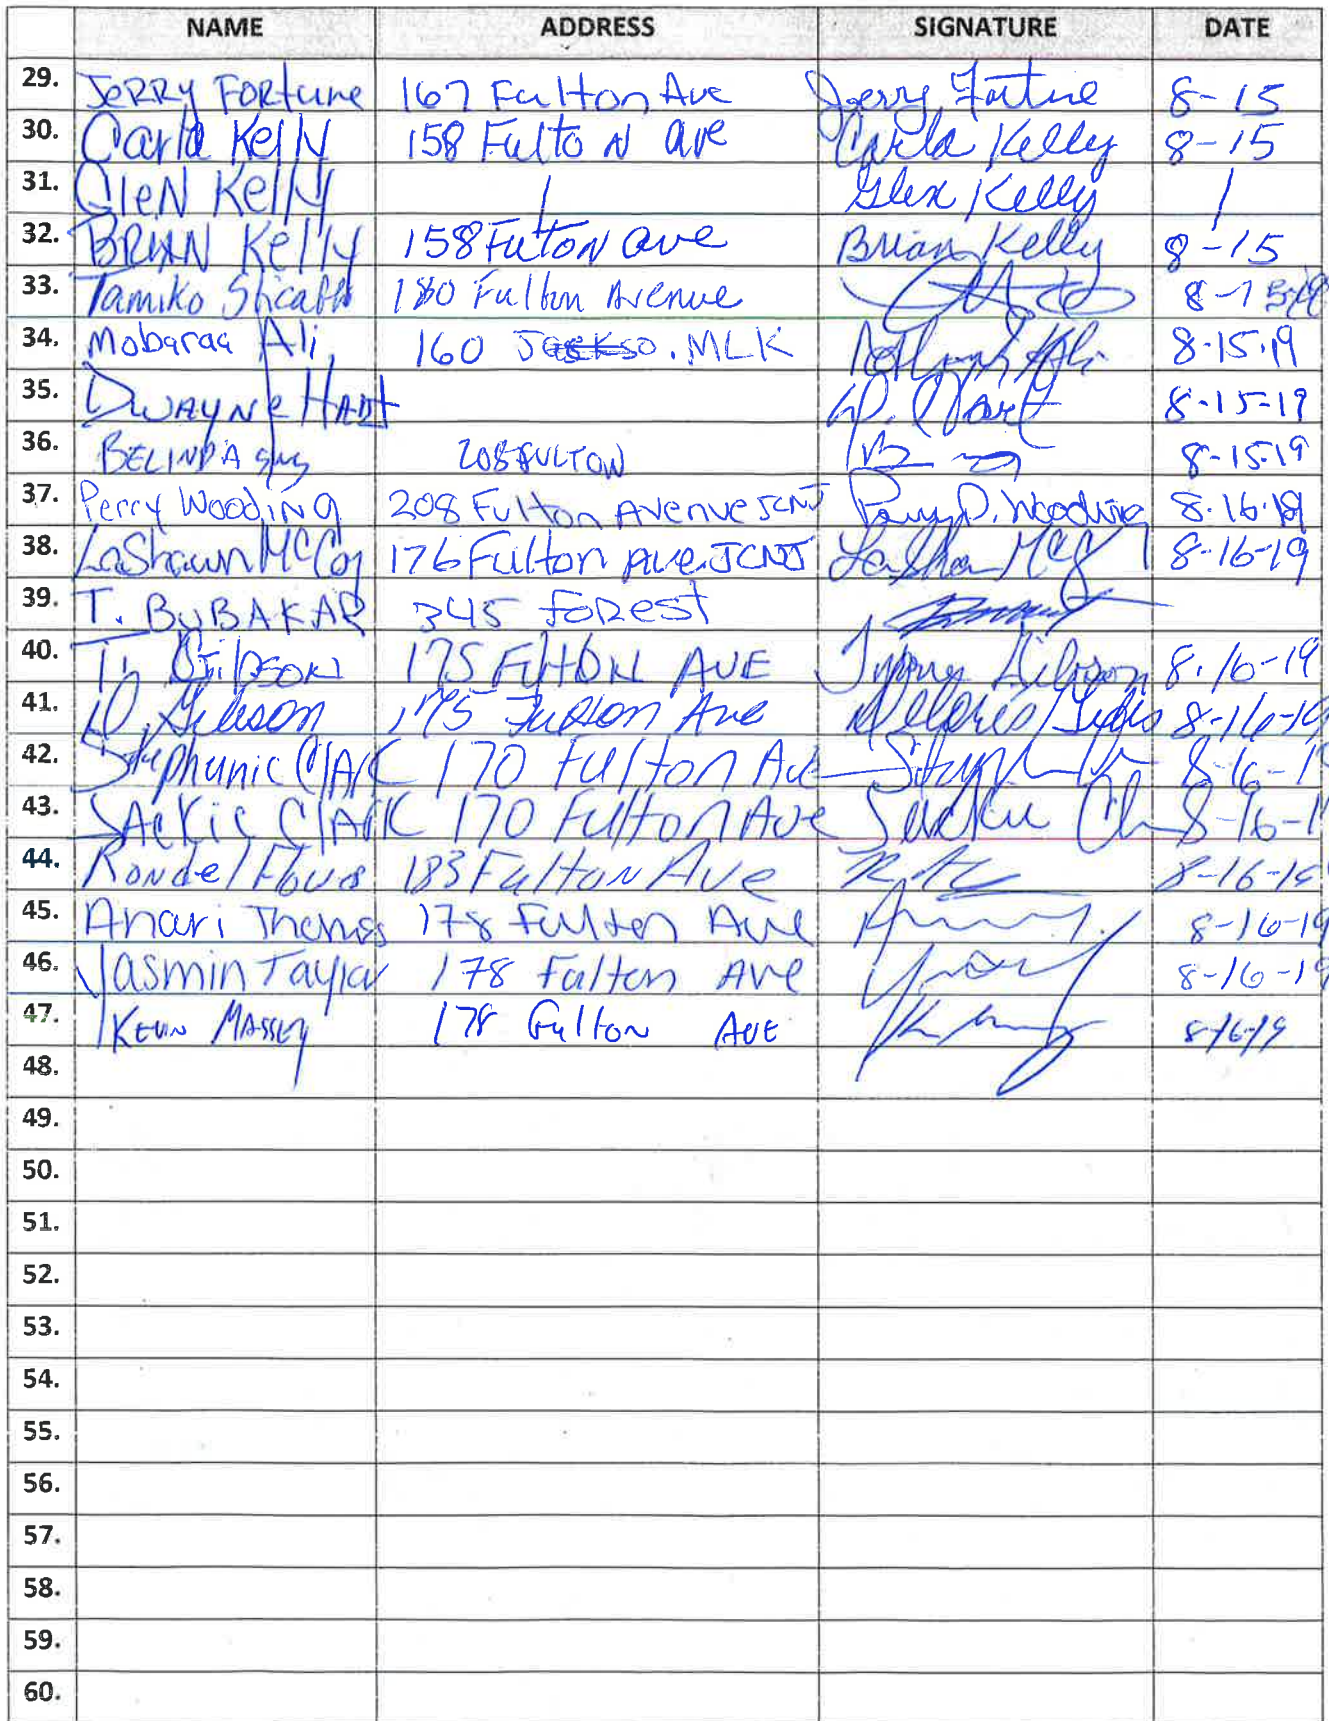 NAME ADDRESS SIGNATURE DATE
29. JERRY FORtune 167 Fulton Ave Jerry Fortune 8-15
30. Carla Kelly 158 Fulto N ave Carla Kelly 8-15
31. GleN Kelly | Glen Kelly |
32. BRIAN Kelly 158 Fulton ave Brian Kelly 8-15
33. Tamiko 180 Fulton Avenue
34. Mobaraa Ali 160 . MLK Ali 8.15.19
35. DWAYNE HART D. Hart 8-15-19
36. BELINDA 208 FULTON 8-15-19
37. Perry Wooding 208 Fulton Avenue JCNJ Perry D. Wooding 8.16.19
38. LaShawn McCoy 176 Fulton Ave. JCNJ 8-16-19
39. T. BUBAKAR 345 Forest
40. T. Gibson 175 FultON AVE Gibson 8.16-19
41. D. Gibson 175 Fulton Ave Delores 8-16-19
42. Stephanie ClArk 170 Fulton Ave 8-16-1
43. JAckie ClArk 170 Fulton Ave Jackie 8-16-1
44. Rondel 183 Fulton Ave 8-16-19
45. Anari Thomas 178 Fulton Ave 8-16-19
46. Jasmin Taylor 178 Fulton Ave 8-16-19
47. KEVIN MASSEY 178 Fulton AVE 8-16-19
48.
49.
50.
51.
52.
53.
54.
55.
56.
57.
58.
59.
60.